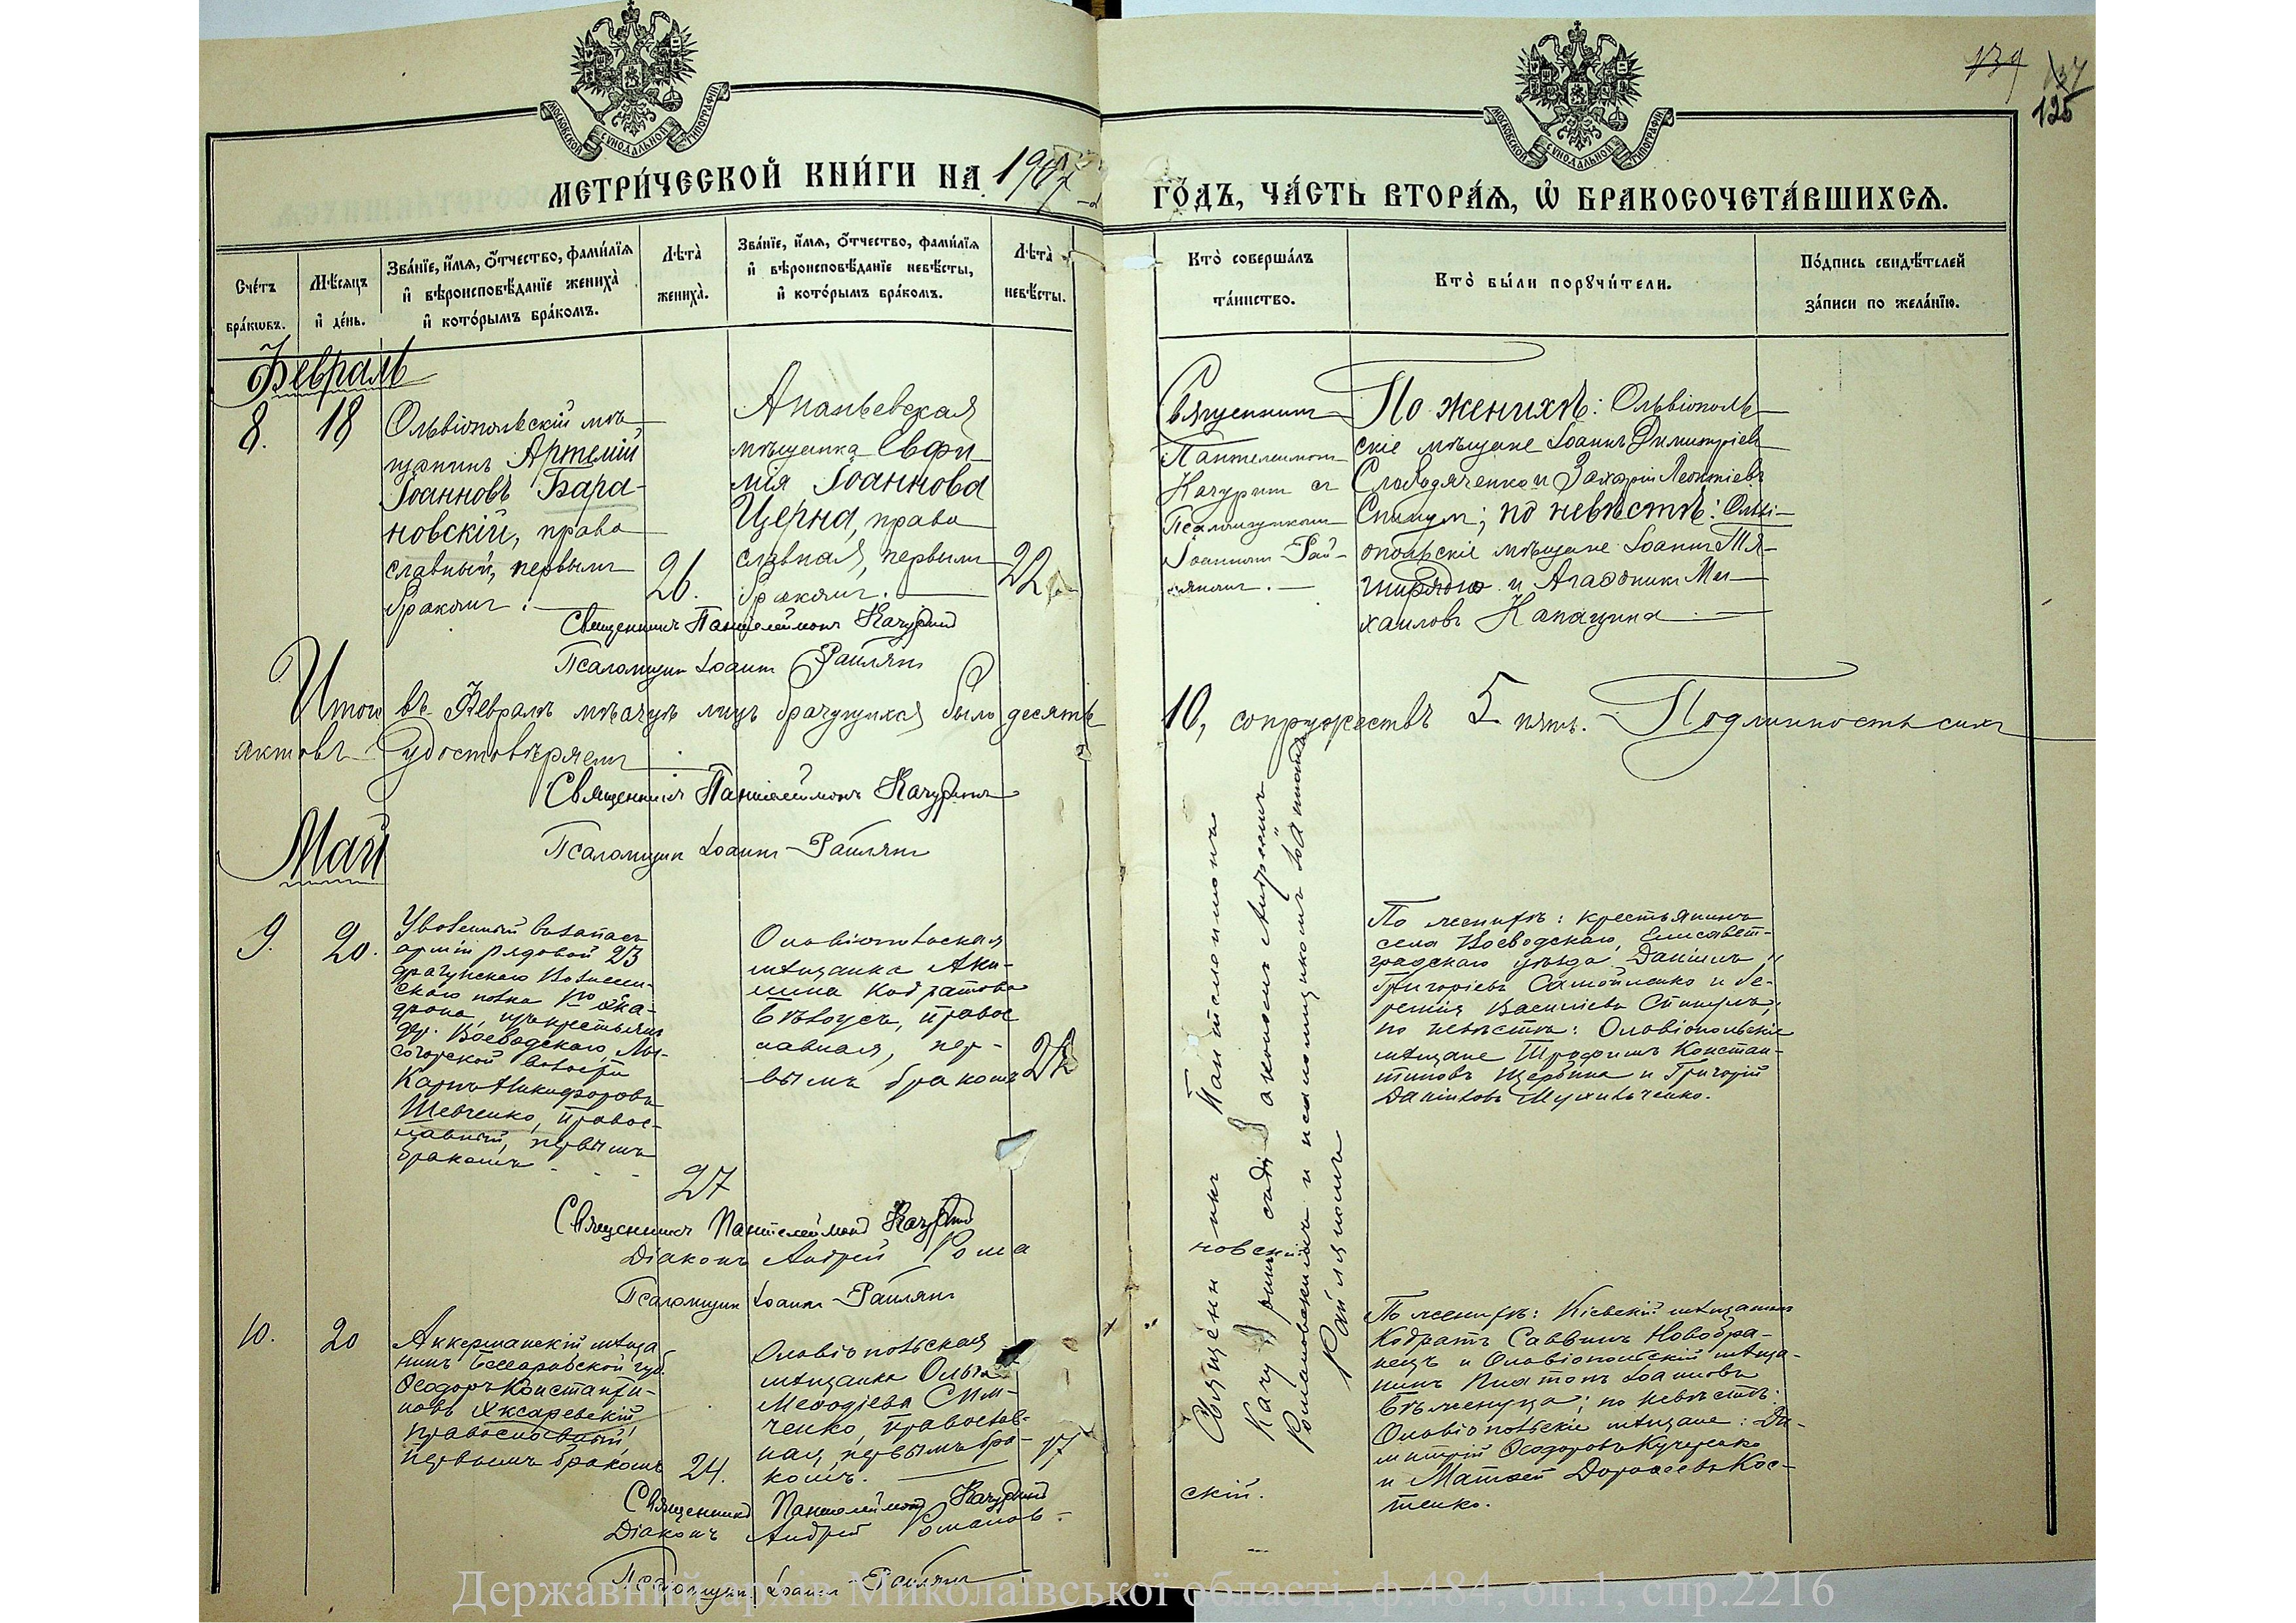 139
137
125
МОСКОВСКОЙ СѴНОДАЛЬНОЙ ТИПОГРАФІИ
МОСКОВСКОЙ СѴНОДАЛЬНОЙ ТИПОГРАФІИ
МЕТРИ́ЧЕСКОЙ КНИ́ГИ НА 1907
ГО́ДЪ, ЧА́СТЬ ВТОРА́Ѧ, Ѽ БРАКОСОЧЕТА́ВШИХСѦ.
Сче́тъ бра́кѡвъ.
Мѣ́сѧцъ и҆ де́нь.
Зва́нїе, и҆́мѧ, ѻ҆́тчество, фами́лїѧ
и҆ вѣроисповѣ́данїе жениха̀
и҆ кото́рымъ бра́комъ.
Лѣта̀ жениха̀.
Зва́нїе, и҆́мѧ, ѻ҆́тчество, фами́лїѧ
и҆ вѣроисповѣ́данїе невѣ́сты,
и҆ кото́рымъ бра́комъ.
Лѣта̀ невѣ́сты.
Кто̀ соверша́лъ
та́инство.
Кто̀ бы́ли порꙋчи́тели.
По́дпись свидѣ́телей
за́писи по жела́нїю.
Февраль
8.
18
Ольвіопольскій мѣ-
щанинъ Артемій
Іоанновъ Бара-
новскій, право
славный, первымъ
бракомъ.
26.
Ананьевская
мѣщанка Евфи-
мія Іоаннова
Церна, право
славная, первымъ
бракомъ.
22
Священникъ
Пантелеимонъ
Качуринъ съ
Псаломщикомъ
Іоанномъ Рай-
ляномъ.
По женихѣ: Ольвіополь-
скіе мѣщане Іоаннъ Димитріевъ
Слободяченко и Захарій Леонтіевъ
; по невѣстѣ: Ольві-
опольскіе мѣщане Іоаннъ
и Агаѳоникъ Ми-
хаиловъ
Священникъ Пантелеймонъ Качуринъ
Псаломщикъ Іоаннъ Райлянъ
Итого въ Февралѣ мѣсяцѣ лицъ брачущихся было десять
10, супружествъ 5 пять. Подлинность сихъ
актовъ удостовѣряемъ
Священникъ Пантелеймонъ Качуринъ
Псаломщикъ Іоаннъ Райлянъ
Май
9.
20.
Уволенный въ запасъ
арміи рядовой 23
драгунскаго Вознесен-
скаго полка 1го эска-
дрона, изъ крестьянъ
дер. Воеводскаго, Лы-
согорской волости
Карпъ Никифоровъ
Шевченко, правос-
лавный, первымъ
бракомъ
27
Ольвіопольская
мѣщанка Аки-
лина Кодратова
Бѣлоусъ, правос
лавная, пер-
вымъ бракомъ
Священникъ Пантелеимонъ
Качуринъ съ діакономъ Андреемъ
Романовскимъ и псаломщикомъ Іоанномъ
Райляномъ
По женихѣ: крестьянинъ
села Воеводскаго, Елисавет-
градскаго уѣзда, Даніилъ
Григоріевъ Самойленко и Іе-
ремія Василіевъ
по невѣстѣ: Ольвіопольскіе
мѣщане Трофимъ Констан-
тиновъ Щербина и Григорій
Даніиловъ
Священникъ Пантелеймонъ Качуринъ
Діаконъ Андрей Рома
новскій
Псаломщикъ Іоаннъ Райлянъ
10.
20
Аккерманскій мѣща
нинъ Бессарабской губ.
Ѳеодоръ Константи-
новъ
православный,
первымъ бракомъ
24.
Ольвіопольская
мѣщанка Ольга
Меѳодіева Сим-
ченко, православ-
ная, первымъ бра-
комъ.
17
По женихѣ: Кіевскій мѣщанинъ
Кодратъ Саввинъ Новобра-
нецъ и Ольвіопольскій мѣща-
нинъ Платонъ Іоанновъ
; по невѣстѣ:
Ольвіопольскіе мѣщане: Ди-
митрій Ѳеодоровъ Кучеренко
и Матѳей Дороѳеевъ Кос-
тенко.
Священникъ Пантелеймонъ Качуринъ
Діаконъ Андрей Романов-
скій.
Псаломщикъ Іоаннъ Райлянъ
Державний архів Миколаївської області, ф.484, оп.1, спр.2216